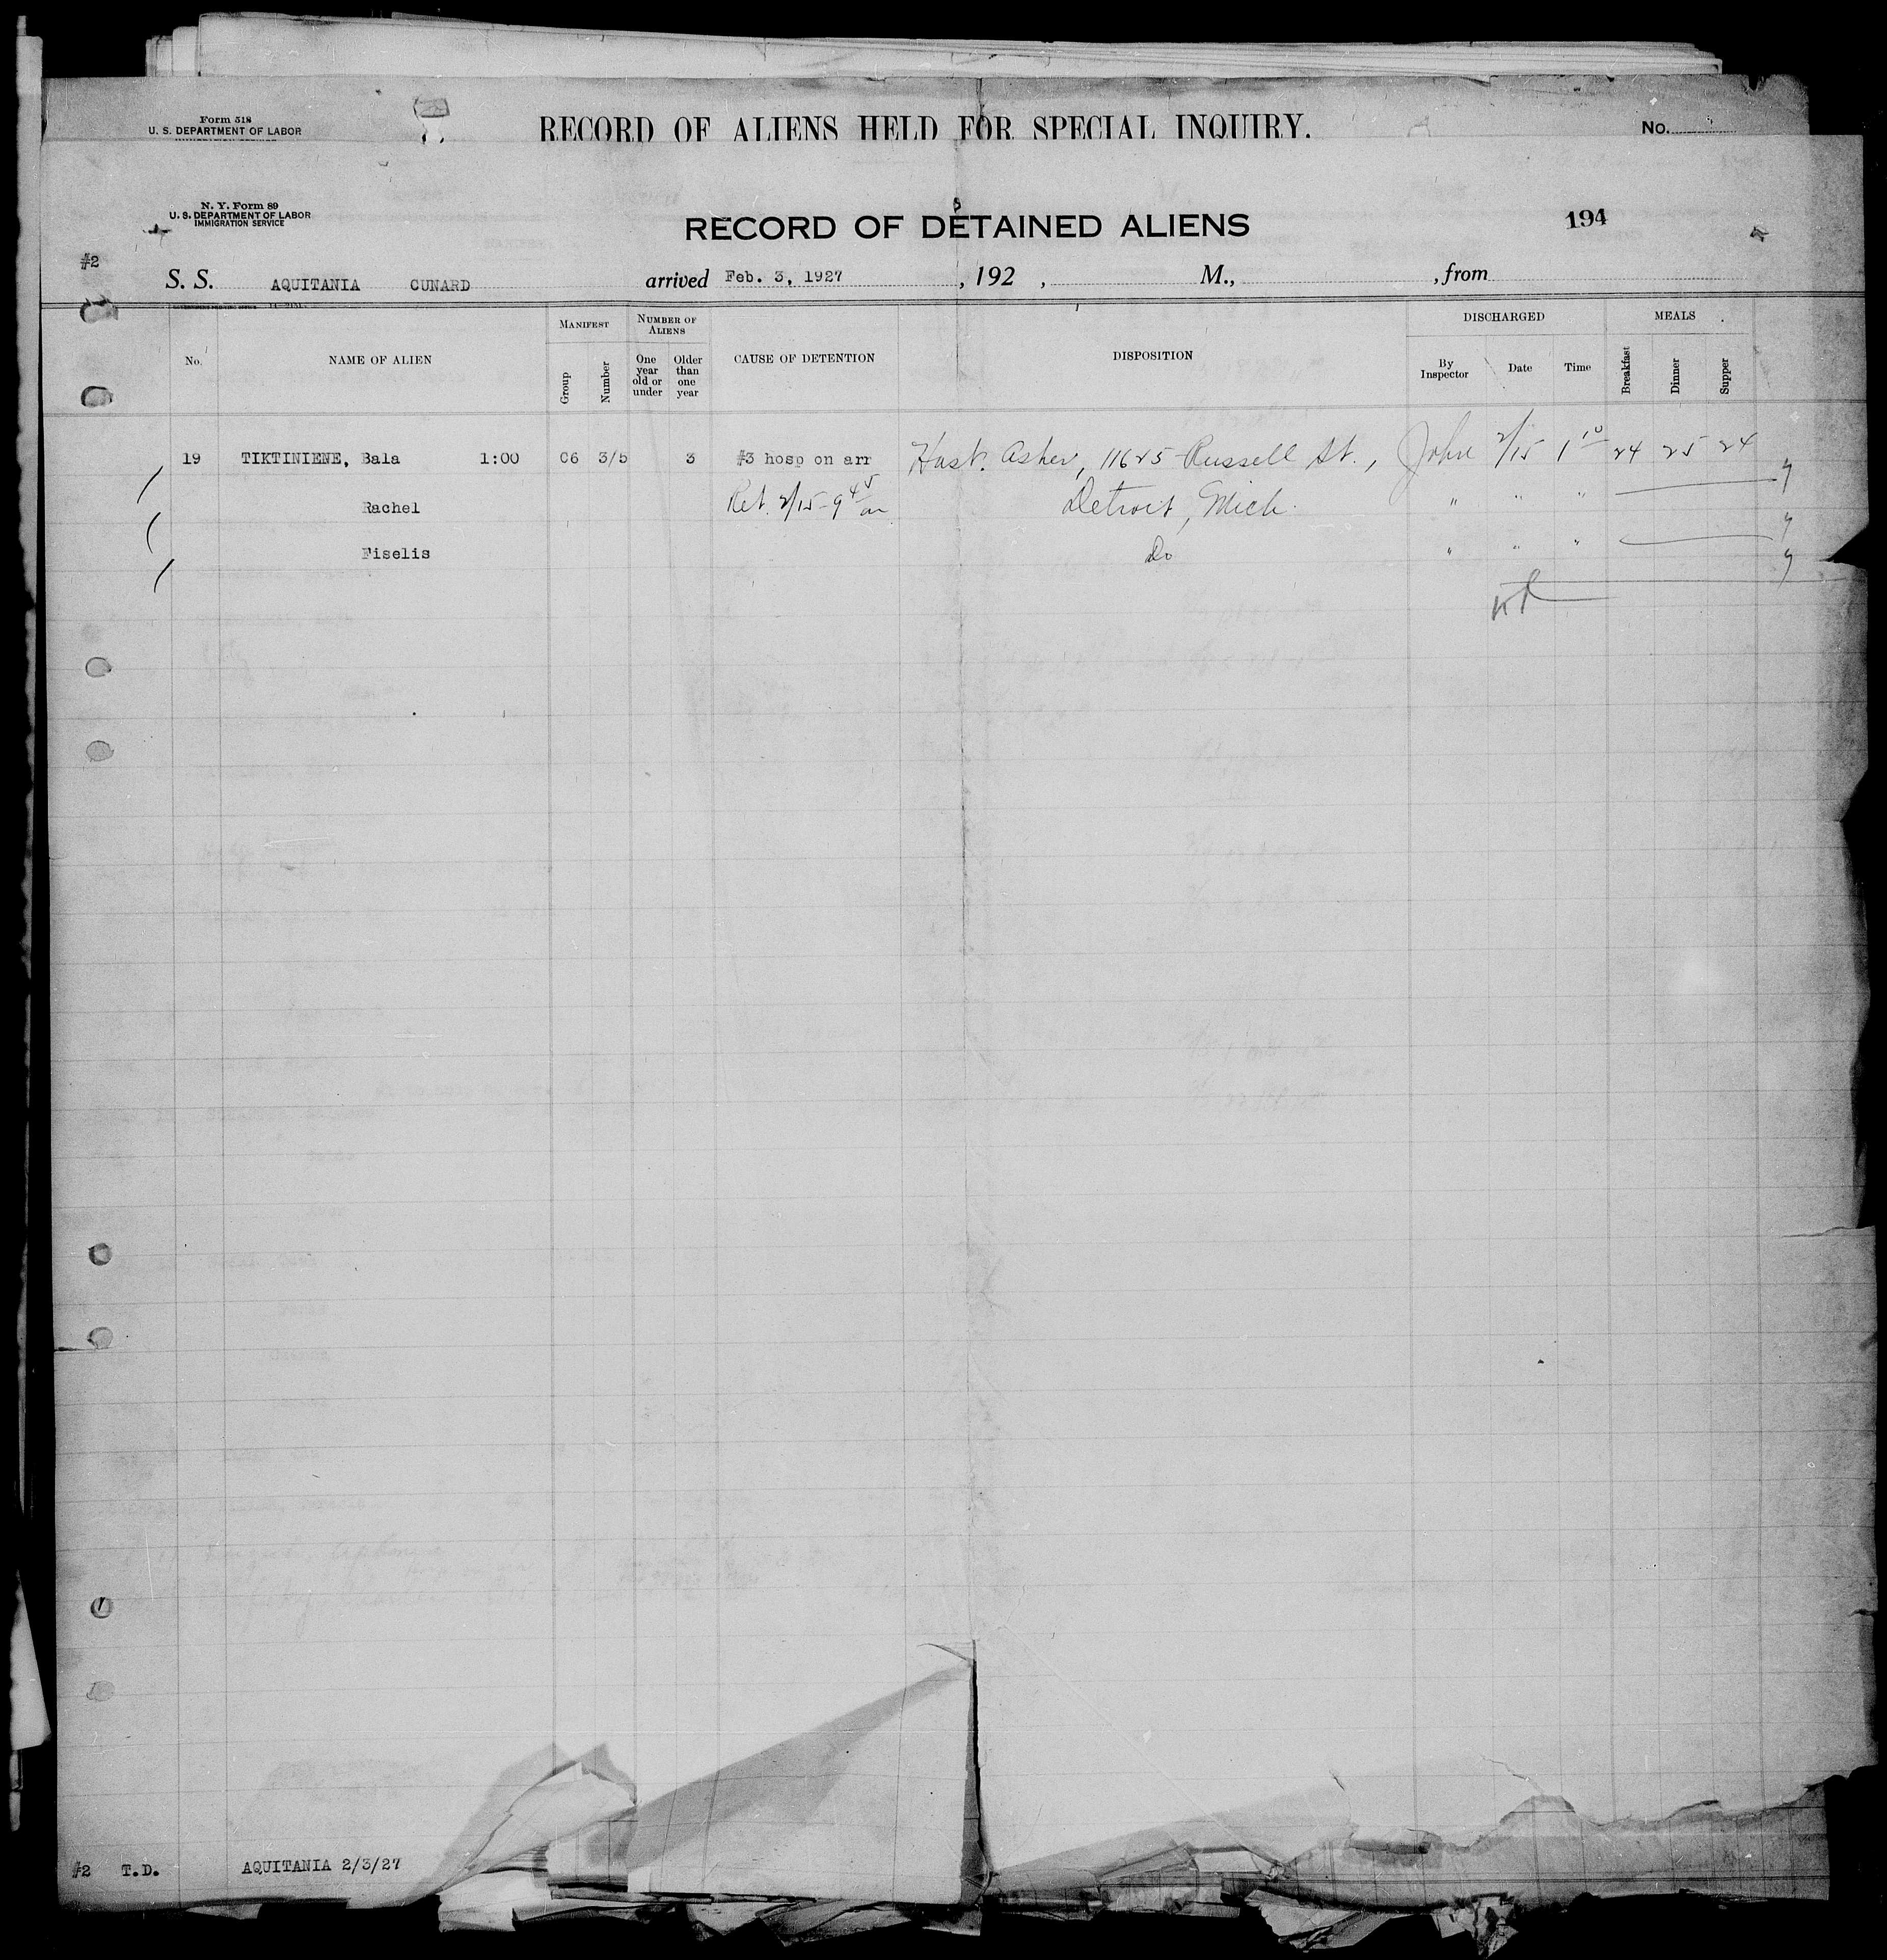 Form 518
U. S. DEPARTMENT OF LABOR
RECORD OF ALIENS HELD FOR SPECIAL INQUIRY.
No.
N. Y. Form 89
U. S. DEPARTMENT OF LABOR
IMMIGRATION SERVICE
RECORD OF DETAINED ALIENS
194
#2
S. S. AQUITANIA CUNARD arrived Feb. 3, 1927, 192 , M., , from
No. NAME OF ALIEN MANIFEST Group Number NUMBER OF ALIENS One year old or under Older than one year CAUSE OF DETENTION DISPOSITION DISCHARGED By Inspector Date Time MEALS Breakfast Dinner Supper
19 TIKTINIENE, Bala 1:00 C6 3/5 3 #3 hosp on arr Husb. Asher, 11625 Russell St., John 2/15 1 10 24 25 24
Rachel Ret. 2/15 - 9 45 am Detroit, Mich. " " "
Fiselis Do " " "
#2 T.D. AQUITANIA 2/3/27